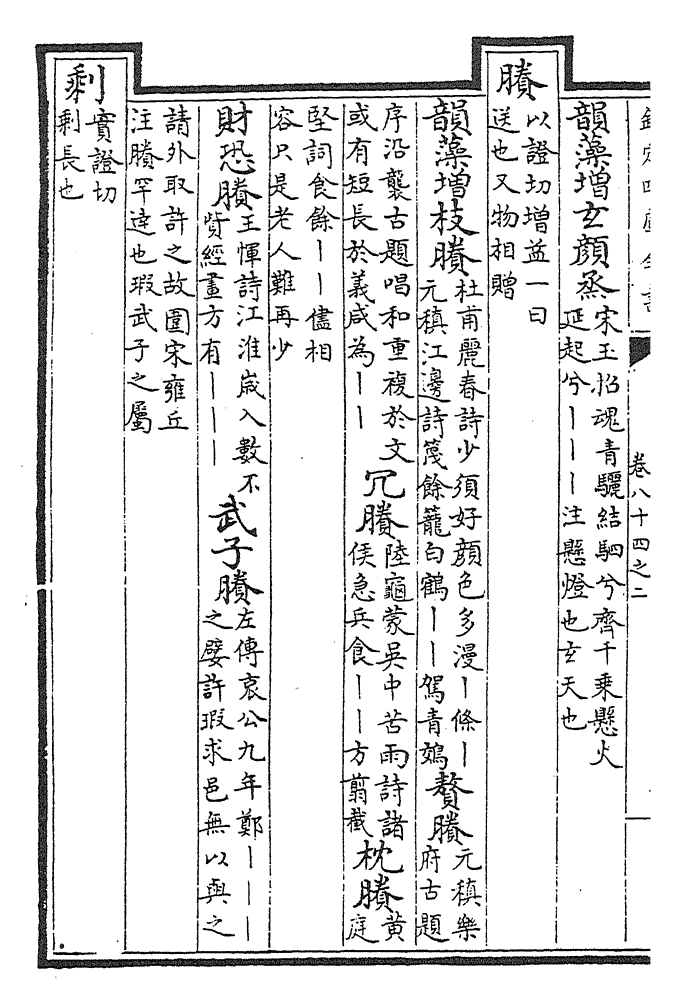 欽定四庫全書
卷八十四之二
韻藻增玄顔烝宋玉招魂青驪結駟兮齊千乗懸火
延起兮丨丨丨注懸燈也玄天也
賸以證切增益一曰
送也又物相贈
韻藻增枝賸杜甫麗春詩少須好顔色多漫丨條丨
元稹江邊詩篾餘籠白鶴丨丨駕青鵁贅賸元稹樂
府古題
序沿襲古題唱和重複於文
或有短長於義咸為丨丨冗賸陸龜蒙吳中苦雨詩諸
侯急兵食丨丨方翦截枕賸黄
庭
堅詞食餘丨丨儘相
容只是老人難再少
財恐賸王惲詩江淮嵗入數不
貲經畫方有丨丨丨武子賸左傳哀公九年鄭丨丨丨
之嬖許瑕求邑無以與之
請外取許之故圍宋雍丘
注賸罕逹也瑕武子之屬
剩實證切
剩長也